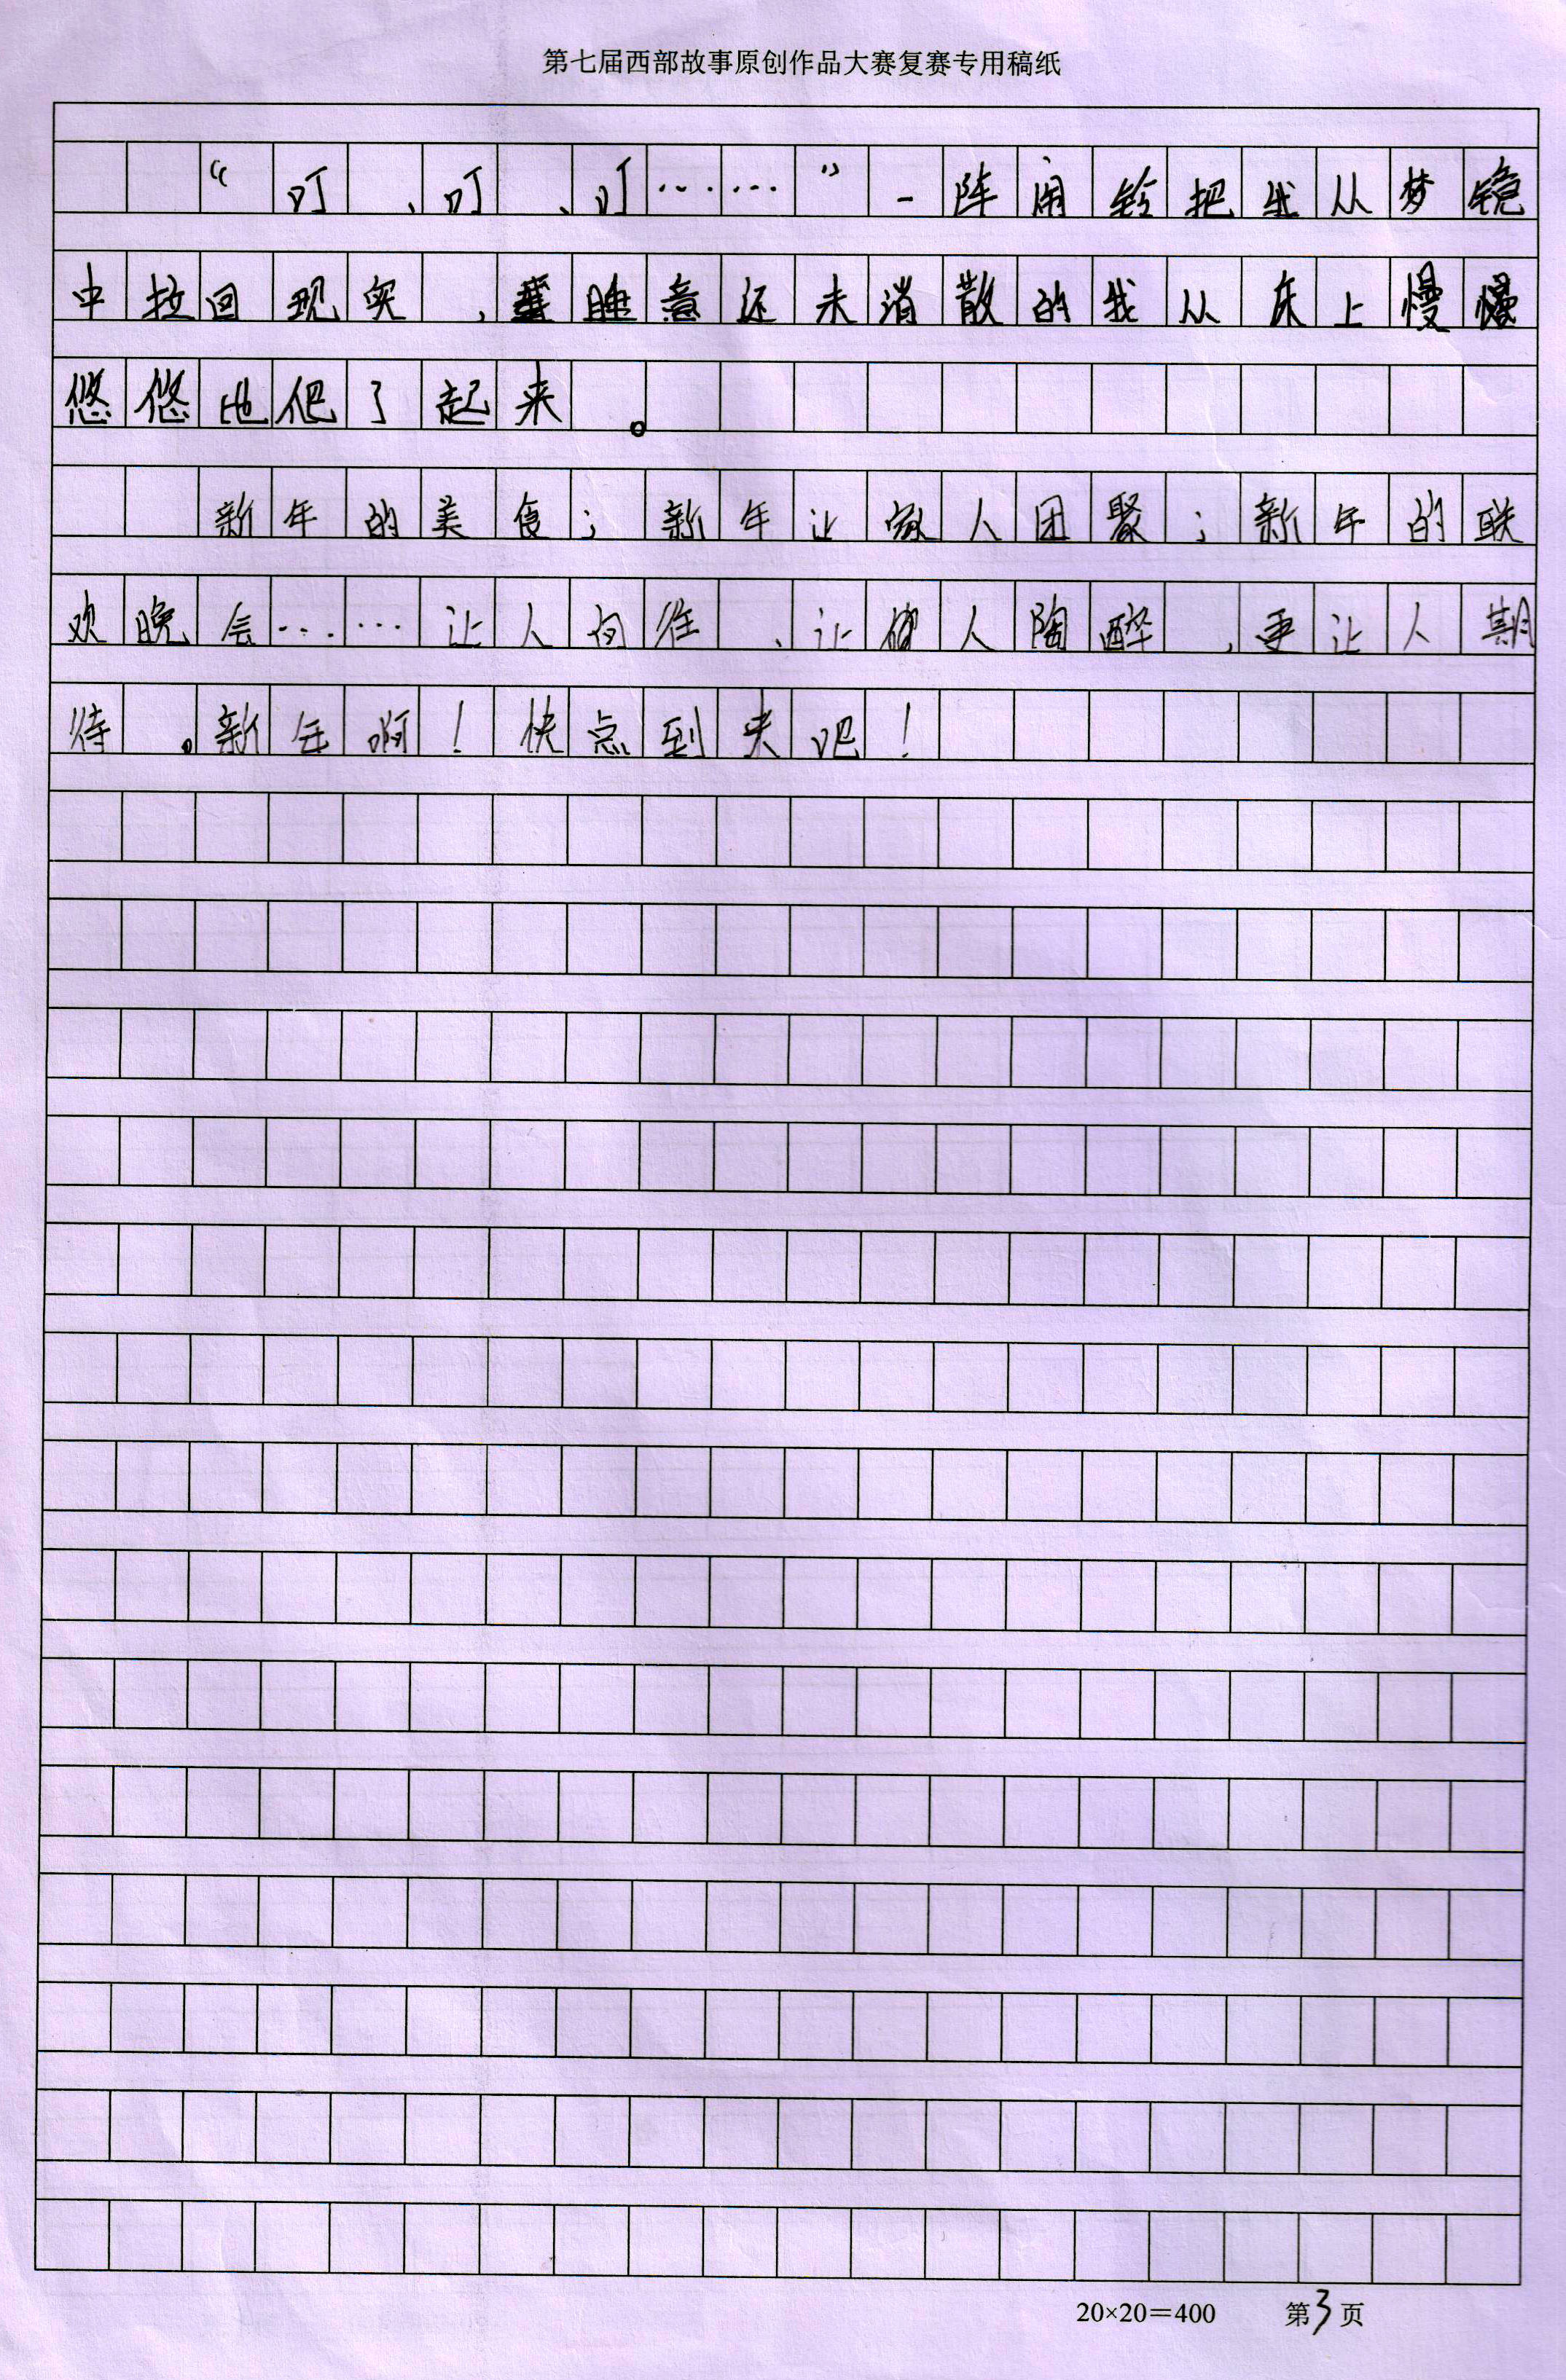 第七届西部故事原创作品大赛复赛专用稿纸
“叮、叮、叮……”一阵闹铃把我从梦镜
中拉回现实，睡意还未消散的我从床上慢慢
悠悠地爬了起来。
新年的美食；新年让家人团聚；新年的联
欢晚会……让人向往、让人陶醉，更让人期
待。新年啊！快点到来吧！
20×20=400 第3页